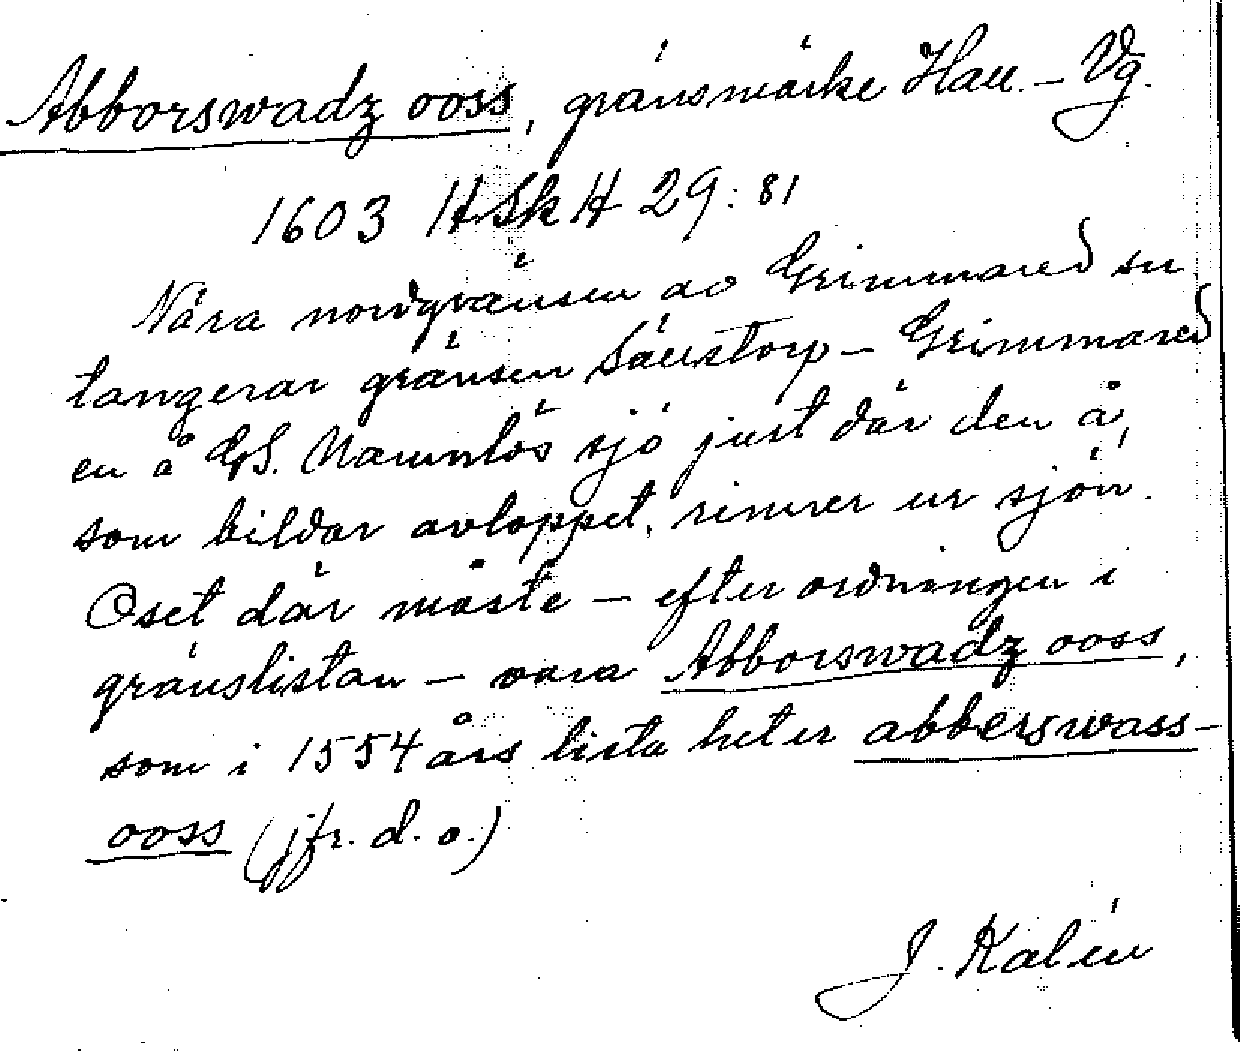 Abborswadz ooss, gränsmärke Hall. – Vg.
1603 HSkH 29:81
Nära nordgränsen av Grimmared sn
tangerar gränsen Sävstorp – Grimmared
en å GS. Namnlös sjö just där den å,
som bildar avloppet, rinner ur sjön.
Oset där måste – efter ordningen i
gränslistan – vara Abborswadz ooss,
som i 1554 års lista heter abberswass-
ooss (jfr. d. o.)
J. Kalén